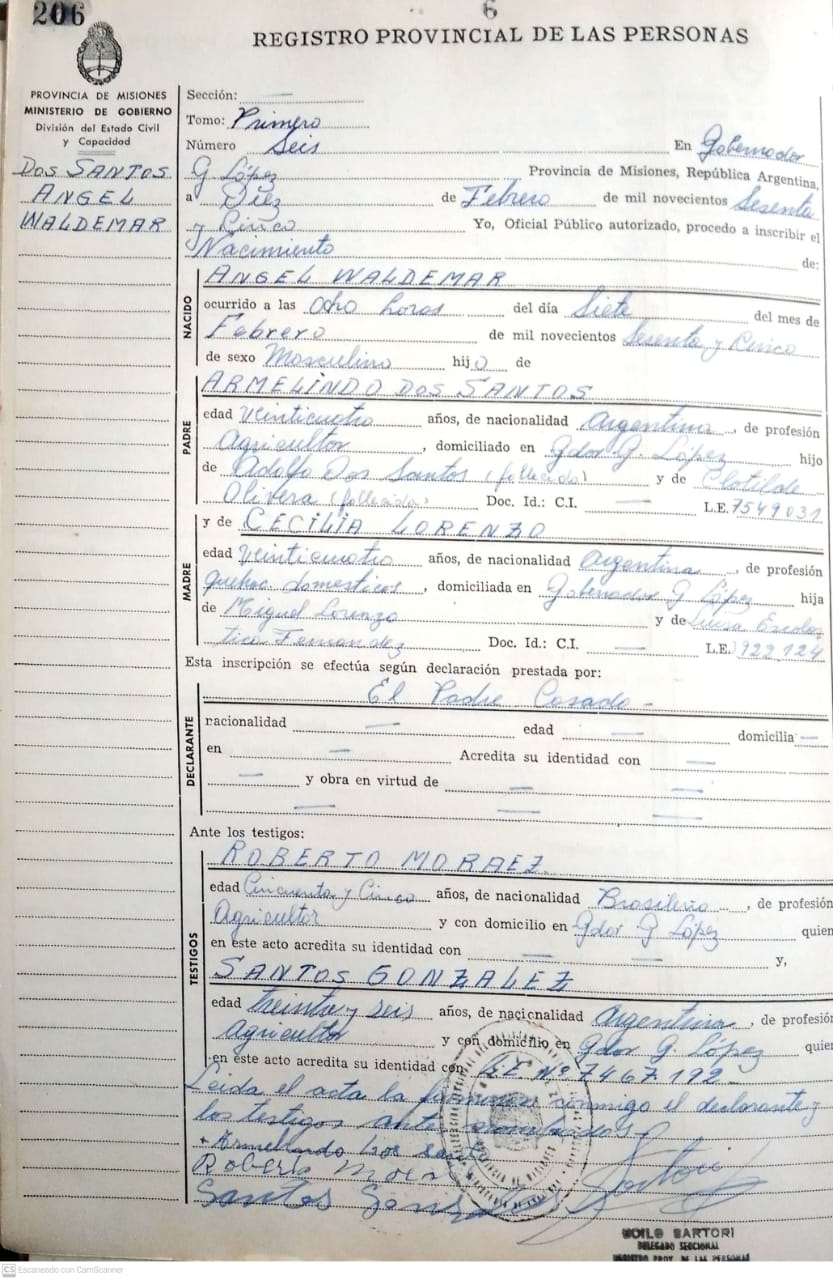 206
6
REGISTRO PROVINCIAL DE LAS PERSONAS
PROVINCIA DE MISIONES
MINISTERIO DE GOBIERNO
División del Estado Civil
y Capacidad
DOS SANTOS
ANGEL
WALDEMAR
Sección: —
Tomo: Primero
Número Seis En Gobernador
G López Provincia de Misiones, República Argentina,
a Diez de Febrero de mil novecientos Sesenta
y Cinco Yo, Oficial Público autorizado, procedo a inscribir el
Nacimiento de:
NACIDO
ANGEL WALDEMAR
ocurrido a las ocho horas del día Siete del mes de
Febrero de mil novecientos Sesenta y Cinco
de sexo Masculino hijo de
PADRE
ARMELINDO DOS SANTOS
edad veinticuatro años, de nacionalidad argentina, de profesión
Agricultor, domiciliado en Gdor G. López hijo
de Adolfo Dos Santos (fallecido) y de Clotilde
Olivera (fallecida) Doc. Id.: C.I. — L.E. 7549031
y de CECILIA LORENZO
MADRE
edad veinticuatro años, de nacionalidad argentina, de profesión
quehac. domesticos, domiciliada en Gobernador G López hija
de Miguel Lorenzo y de Luisa Escolas
tica Fernandez Doc. Id.: C.I. — L.E. 922.124
Esta inscripción se efectúa según declaración prestada por:
El Padre Casado -
DECLARANTE
nacionalidad — edad — domicilia —
en — Acredita su identidad con —
— y obra en virtud de — —
— — —
Ante los testigos:
TESTIGOS
ROBERTO MORAEZ
edad Cincuenta y Cinco años, de nacionalidad Brasileña, de profesión
Agricultor y con domicilio en Gdor G López quien
en este acto acredita su identidad con — — y,
SANTOS GONZALEZ
edad treinta y seis años, de nacionalidad argentina, de profesión
Agricultor y con domicilio en Gdor G. López quien
en este acto acredita su identidad con L.E Nº 7467.192-
Leida el acta la firmaron conmigo el declarante y
los testigos ante nombrados
Roberto
Santos
Sartori
SARTORI
DELEGADO SECCIONAL
REGISTRO PROV. DE LAS PERSONAS
CS Escaneado con CamScanner